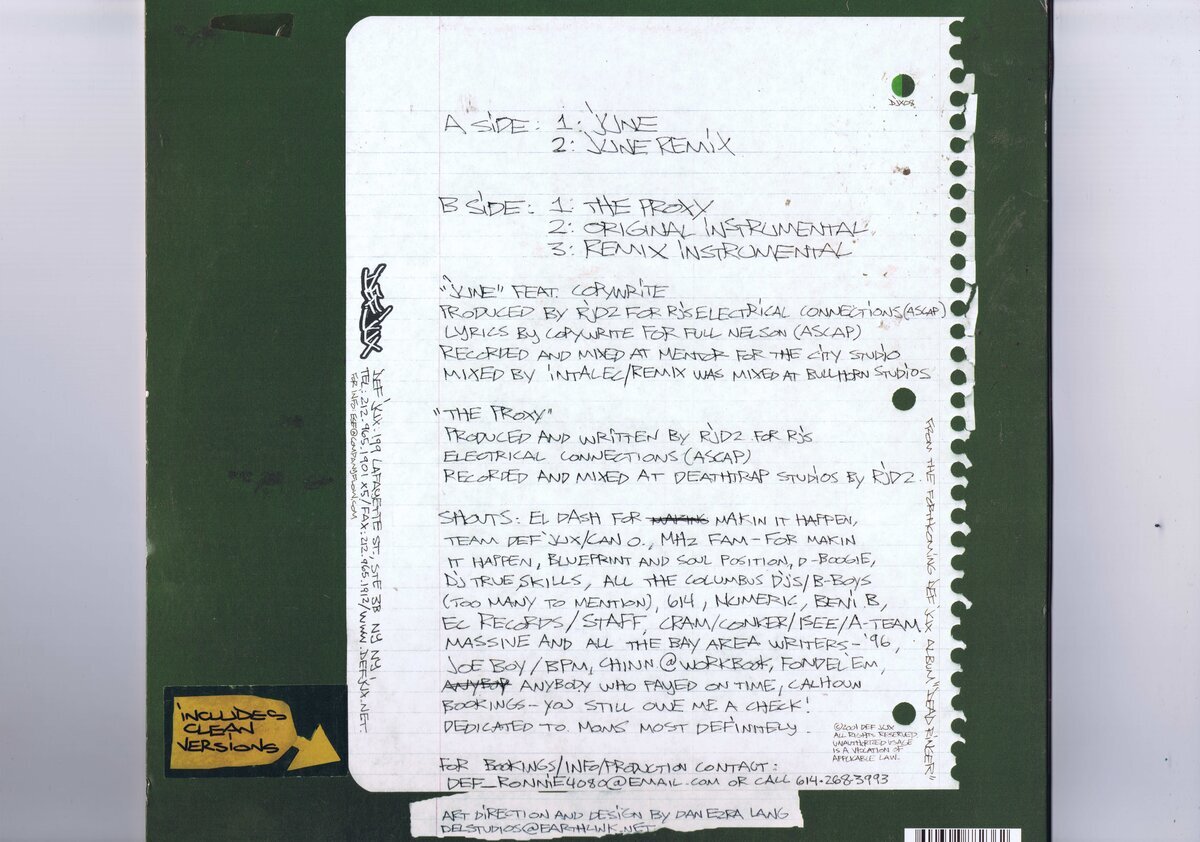 DJX08
A SIDE: 1: JUNE
2: JUNE REMIX
B SIDE: 1: THE PROXY
2: ORIGINAL INSTRUMENTAL
3: REMIX INSTRUMENTAL
"JUNE" FEAT. COPYWRITE
PRODUCED BY RJD2 FOR RJ'S ELECTRICAL CONNECTIONS (ASCAP)
LYRICS BY COPYWRITE FOR FULL NELSON (ASCAP)
RECORDED AND MIXED AT MENTOR FOR THE CITY STUDIO
MIXED BY INTALEC/REMIX WAS MIXED AT BULLHORN STUDIOS
"THE PROXY"
PRODUCED AND WRITTEN BY RJD2 FOR RJ'S
ELECTRICAL CONNECTIONS (ASCAP)
RECORDED AND MIXED AT DEATHTRAP STUDIOS BY RJD2.
SHOUTS: EL DASH FOR MAKING MAKIN IT HAPPEN,
TEAM DEF JUX/CAN O., MHZ FAM-FOR MAKIN
IT HAPPEN, BLUEPRINT AND SOUL POSITION, D-BOOGIE,
DJ TRUE SKILLS, ALL THE COLUMBUS DJ'S/B-BOYS
(TOO MANY TO MENTION), 614, NUMERIC, BENI B,
EC RECORDS/STAFF, CRAM/CONKER/ISEE/A-TEAM
MASSIVE AND ALL THE BAY AREA WRITERS-'96,
JOE BOY/BPM, CHINN @ WORKBOOK, FONDEL EM,
ANYBOD ANYBODY WHO PAYED ON TIME, CALHOUN
BOOKINGS-YOU STILL OWE ME A CHECK!
DEDICATED TO MOMS MOST DEFINITELY.
FOR BOOKINGS/INFO/PRODUCTION CONTACT:
DEF_RONNIE4080@EMAIL.COM OR CALL 614.268.3993
ART DIRECTION AND DESIGN BY DAN EZRA LANG
DELSTUDIOS@EARTHLINK.NET
©2001 DEF JUX
ALL RIGHTS RESERVED.
UNAUTHORIZED USAGE
IS A VIOLATION OF
APPLICABLE LAW.
FROM THE FORTHCOMING DEF JUX ALBUM "DEAD RINGER"
DEF JUX
DEF JUX. 199 LAFAYETTE ST., STE 3B NY NY.
TEL: 212.965.1901 X5/FAX: 212.965.1912/WWW.DEFJUX.NET
FOR INFO: ESF@COMPANYFLOW.COM
INCLUDES
CLEAN
VERSIONS